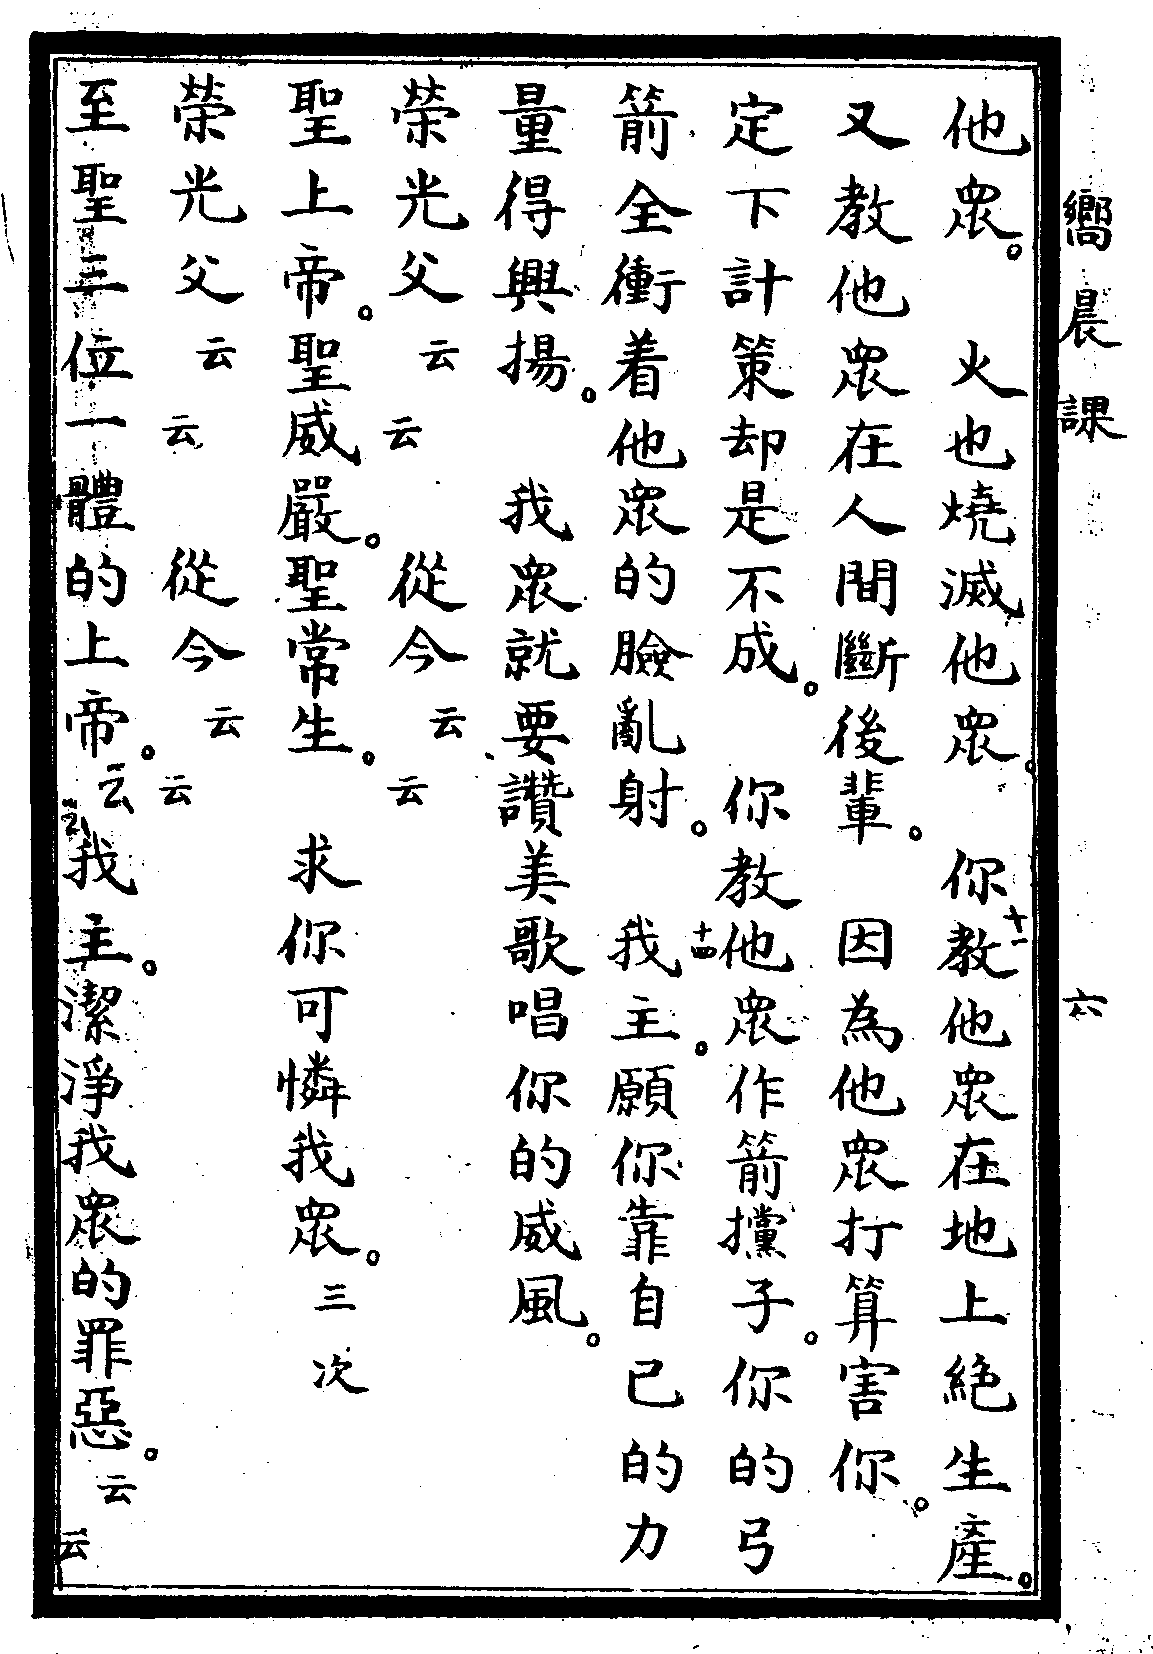 嚮晨課 六
他眾。火也燒滅他眾。你十一教他眾在地上絶生產。
又教他眾在人間斷後輩。因為他眾打算害你。
定下計策却是不成。你教他眾作箭攩子。你的弓
箭全衝着他眾的臉亂射。十四我主。願你靠自已的力
量得興揚。我眾就要讚美歌唱你的威風。
榮光父云云 從今云云
聖上帝。聖威嚴。聖常生。求你可憐我眾。三次
榮光父云云 從今云云
至聖三位一體的上帝。云云我主。潔淨我眾的罪惡。云云